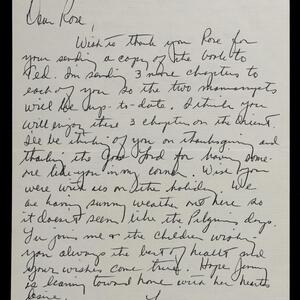 Dear Rose,
Wish to thank you Rose for
your sending a copy of the book to
Ted. I'm sending 3 more chapters to
each of you so the two manuscripts
will be up-to-date. I think you
will enjoy these 3 chapters on the Orient.
I'll be thinking of you on Thanksgiving and
thanking the Good Lord for having some-
one like you in my corner. Wish you
were with us on the holiday. We
are having sunny weather out here so
it doesn't seem like the Pilgrim days.
join me & the children wishing
you always the best of health and
your wishes come true. Hope Jenny
is leaning toward home with her hearts
desire.